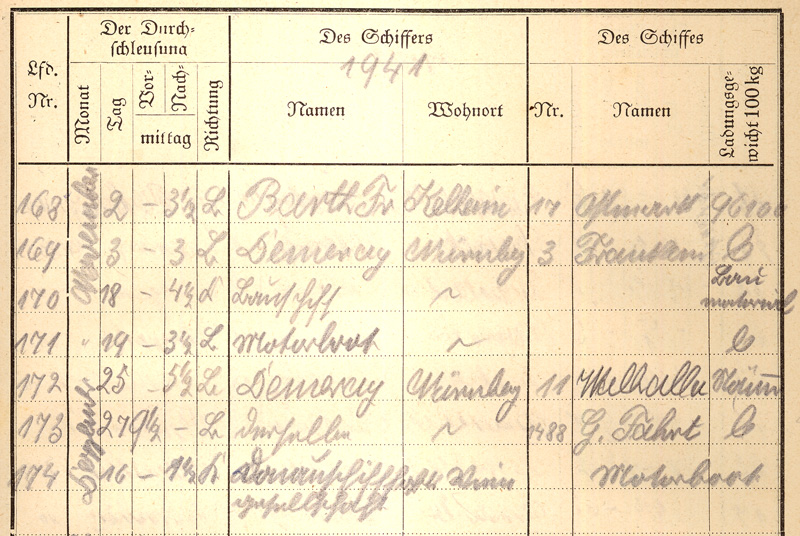 Lfd. Nr.
Der Durch-
schleusung
Monat Tag Vor- Nach- mittag Richtung
Des Schiffers
1941
Namen Wohnort
Des Schiffes
Nr. Namen Ladungsge-
wicht 100 kg
168 November 2 – 3½ L Barth Fr Kelheim 17
169 3 – 3 L Demeray Nürnberg 3 Franken L
170 18 – 4½ Bauschiff ~ Bau
material
171 " 19 – 3½ L Motorboot ~ L
172 25 – 5½ L Demeray Nürnberg 11 Walhalla
173 27 9½ – L derselbe ~ 1488 G. Fahrt L
174 16 – 1½ Donauschiffahrts Wien Motorboot
gesellschaft